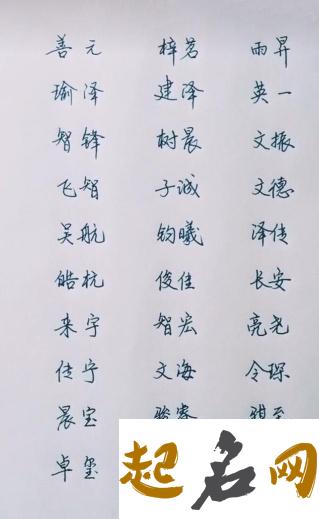 善元 梓茗 雨昇
瑜泽 建泽 英一
智锋 树晨 文振
飞智 子诚 文德
吴航 钧曦 泽传
皓杭 俊佳 长安
来宇 智宏 亮尧
传宁 文海 令琛
晨宝 骏睿
卓玺
起名网